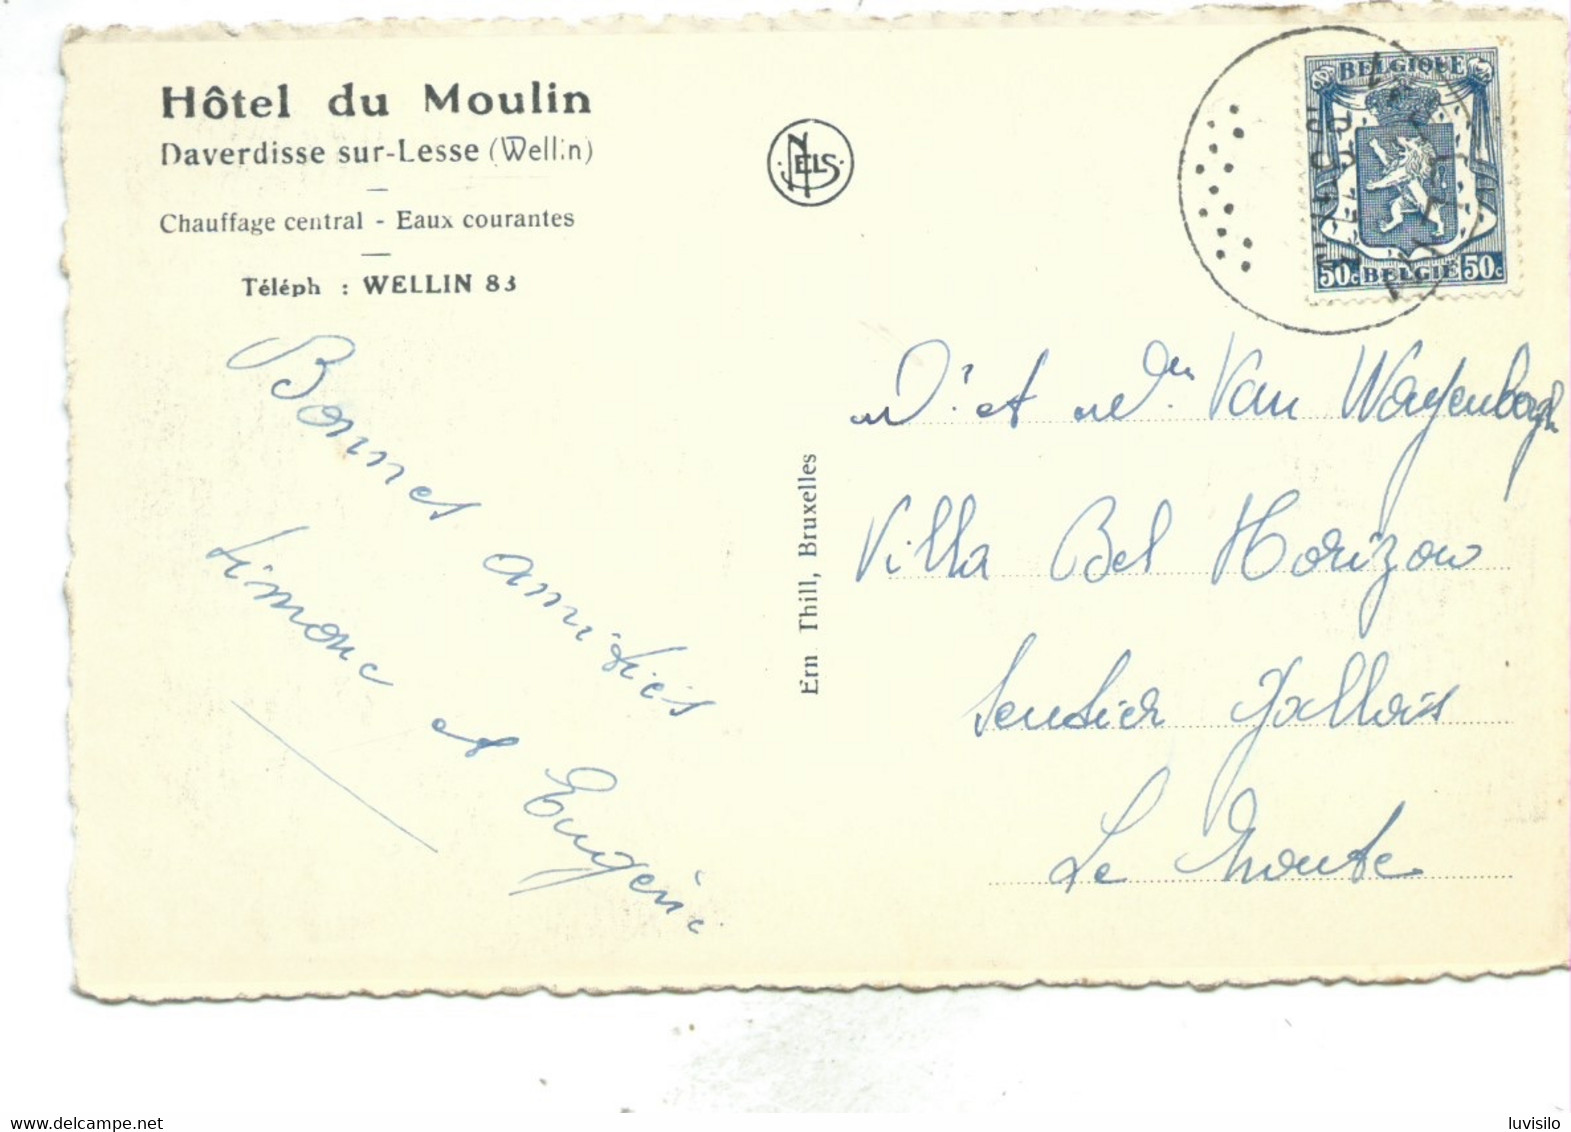 Hôtel du Moulin
Daverdisse sur-Lesse (Wellin)
Chauffage central - Eaux courantes
Téléph : WELLIN 83
NELS
BELGIQUE
50c BELGIË 50c
Ern Thill, Bruxelles
Bonnes amitiés
Simone et Eugénie
et Van
Villa Bel Horizon
Sentier
Le
luvisilo